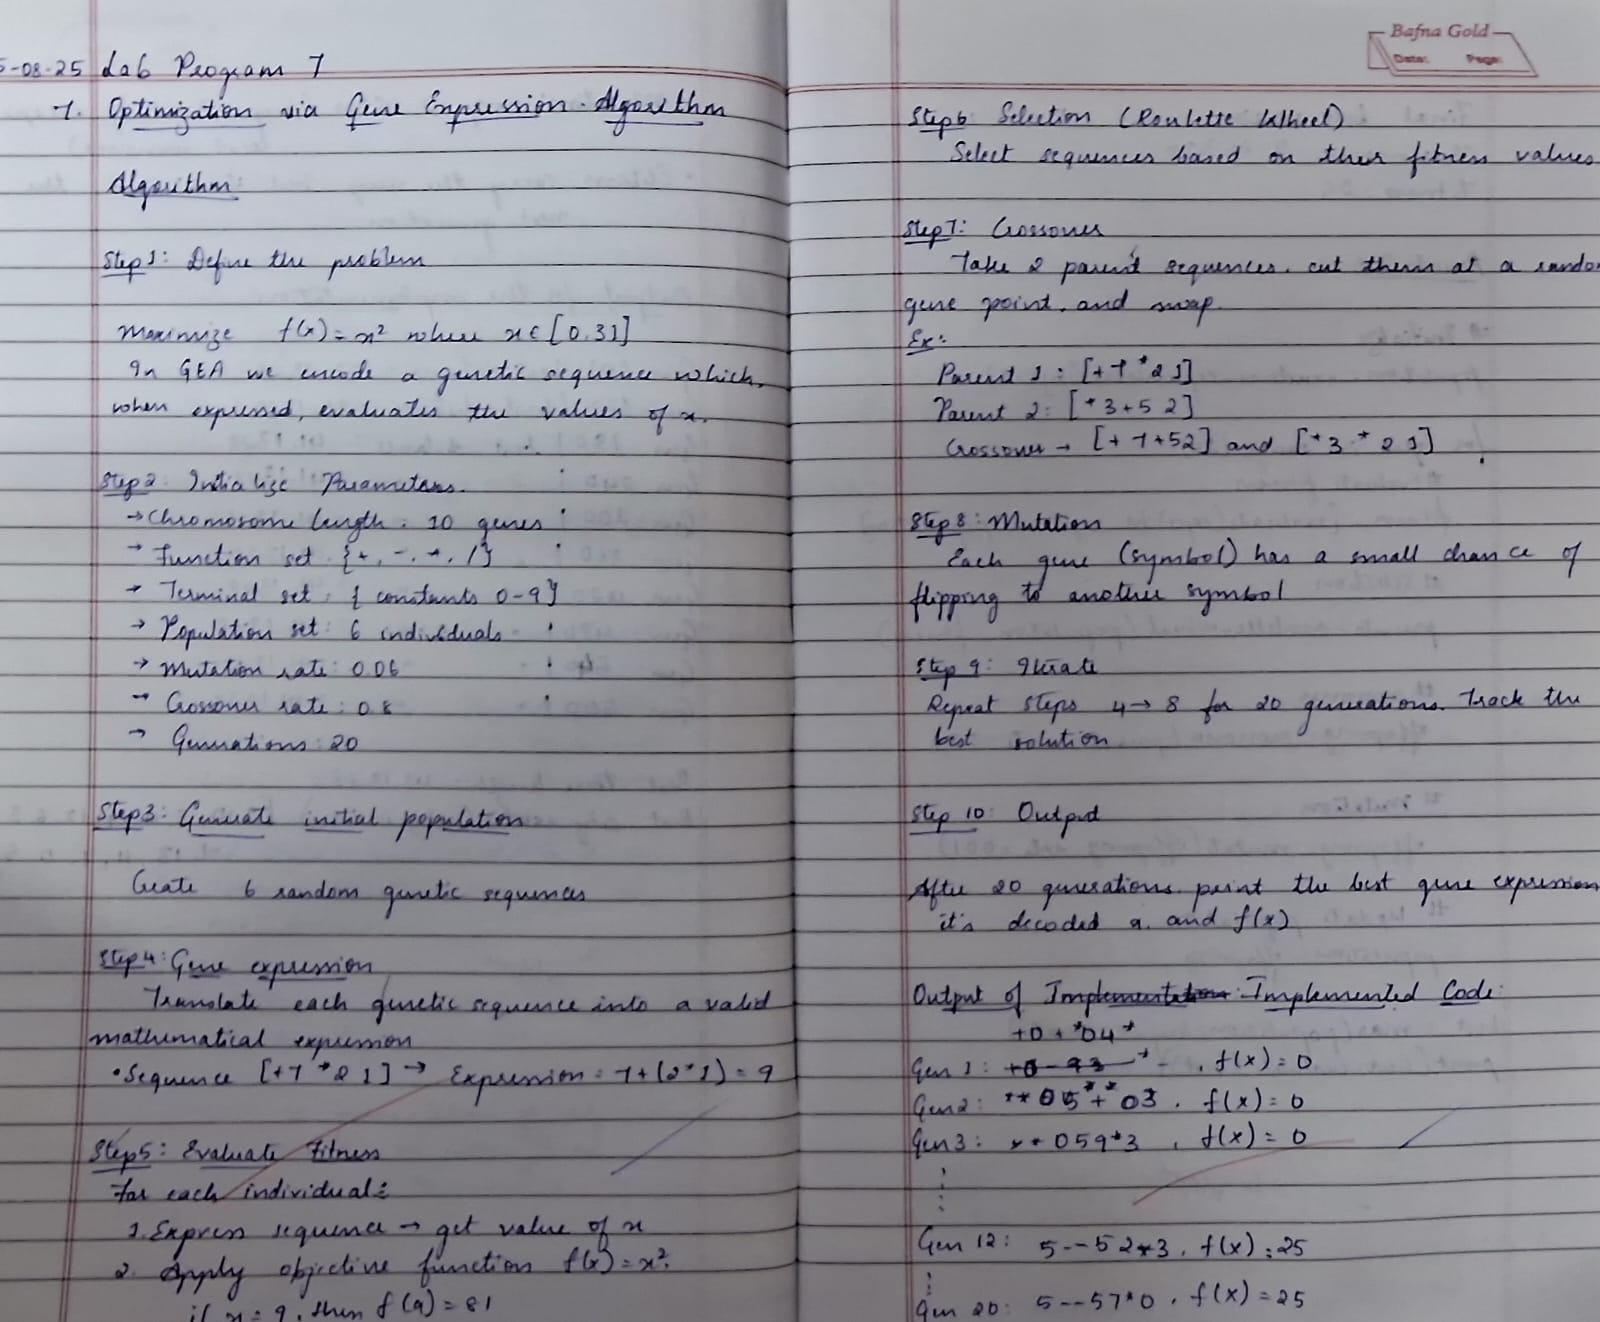 5-08-25 Lab Program 7
7. Optimization via Gene Expression Algorithm
Algorithm
Step 1: Define the problem
Maximize f(x) = x² where x ∈ [0.31]
In GEA we encode a genetic sequence which,
when expressed, evaluates the values of x.
Step 2 Initialize Parameters.
→ Chromosome length: 10 genes
→ Function set: {+, -, *, /}
→ Terminal set: { constants 0-9}
→ Population set: 6 individuals
→ Mutation rate: 0.06
→ Crossover rate: 0.8
→ Generations: 20
Step 3: Generate initial population
Create 6 random genetic sequences
Step 4: Gene expression
Translate each genetic sequence into a valid
mathematical expression
• Sequence [+7 * 2 1] → Expression = 7+(2*1) = 9
Step 5: Evaluate Fitness
For each individual:
1. Express sequence → get value of x
2. Apply objective function f(x) = x².
if x = 9, then f(9) = 81
Bafna Gold
Date: Page:
Step 6 Selection (Roulette Wheel)
Select sequences based on their fitness values
Step 7: Crossover
Take 2 parent sequences, cut them at a rando
gene point, and swap.
Ex:
Parent 1: [+7 * 2 1]
Parent 2: [* 3+5 2]
Crossover → [+ 7+52] and [* 3 * 2 1]
Step 8: Mutation
Each gene (symbol) has a small chance of
flipping to another symbol
Step 9: Iterate
Repeat steps 4 → 8 for 20 generations. Track the
best solution
Step 10: Output
After 20 generations, print the best gene expression
it's decoded x, and f(x)
Output of Implementation Implemented Code:
+0+*04*
Gen 1: , f(x) = 0
Gen 2: **05+**03, f(x) = 0
Gen 3: *+059*3, f(x) = 0
Gen 12: 5--52*3, f(x) = 25
Gen 20: 5--57*0, f(x) = 25